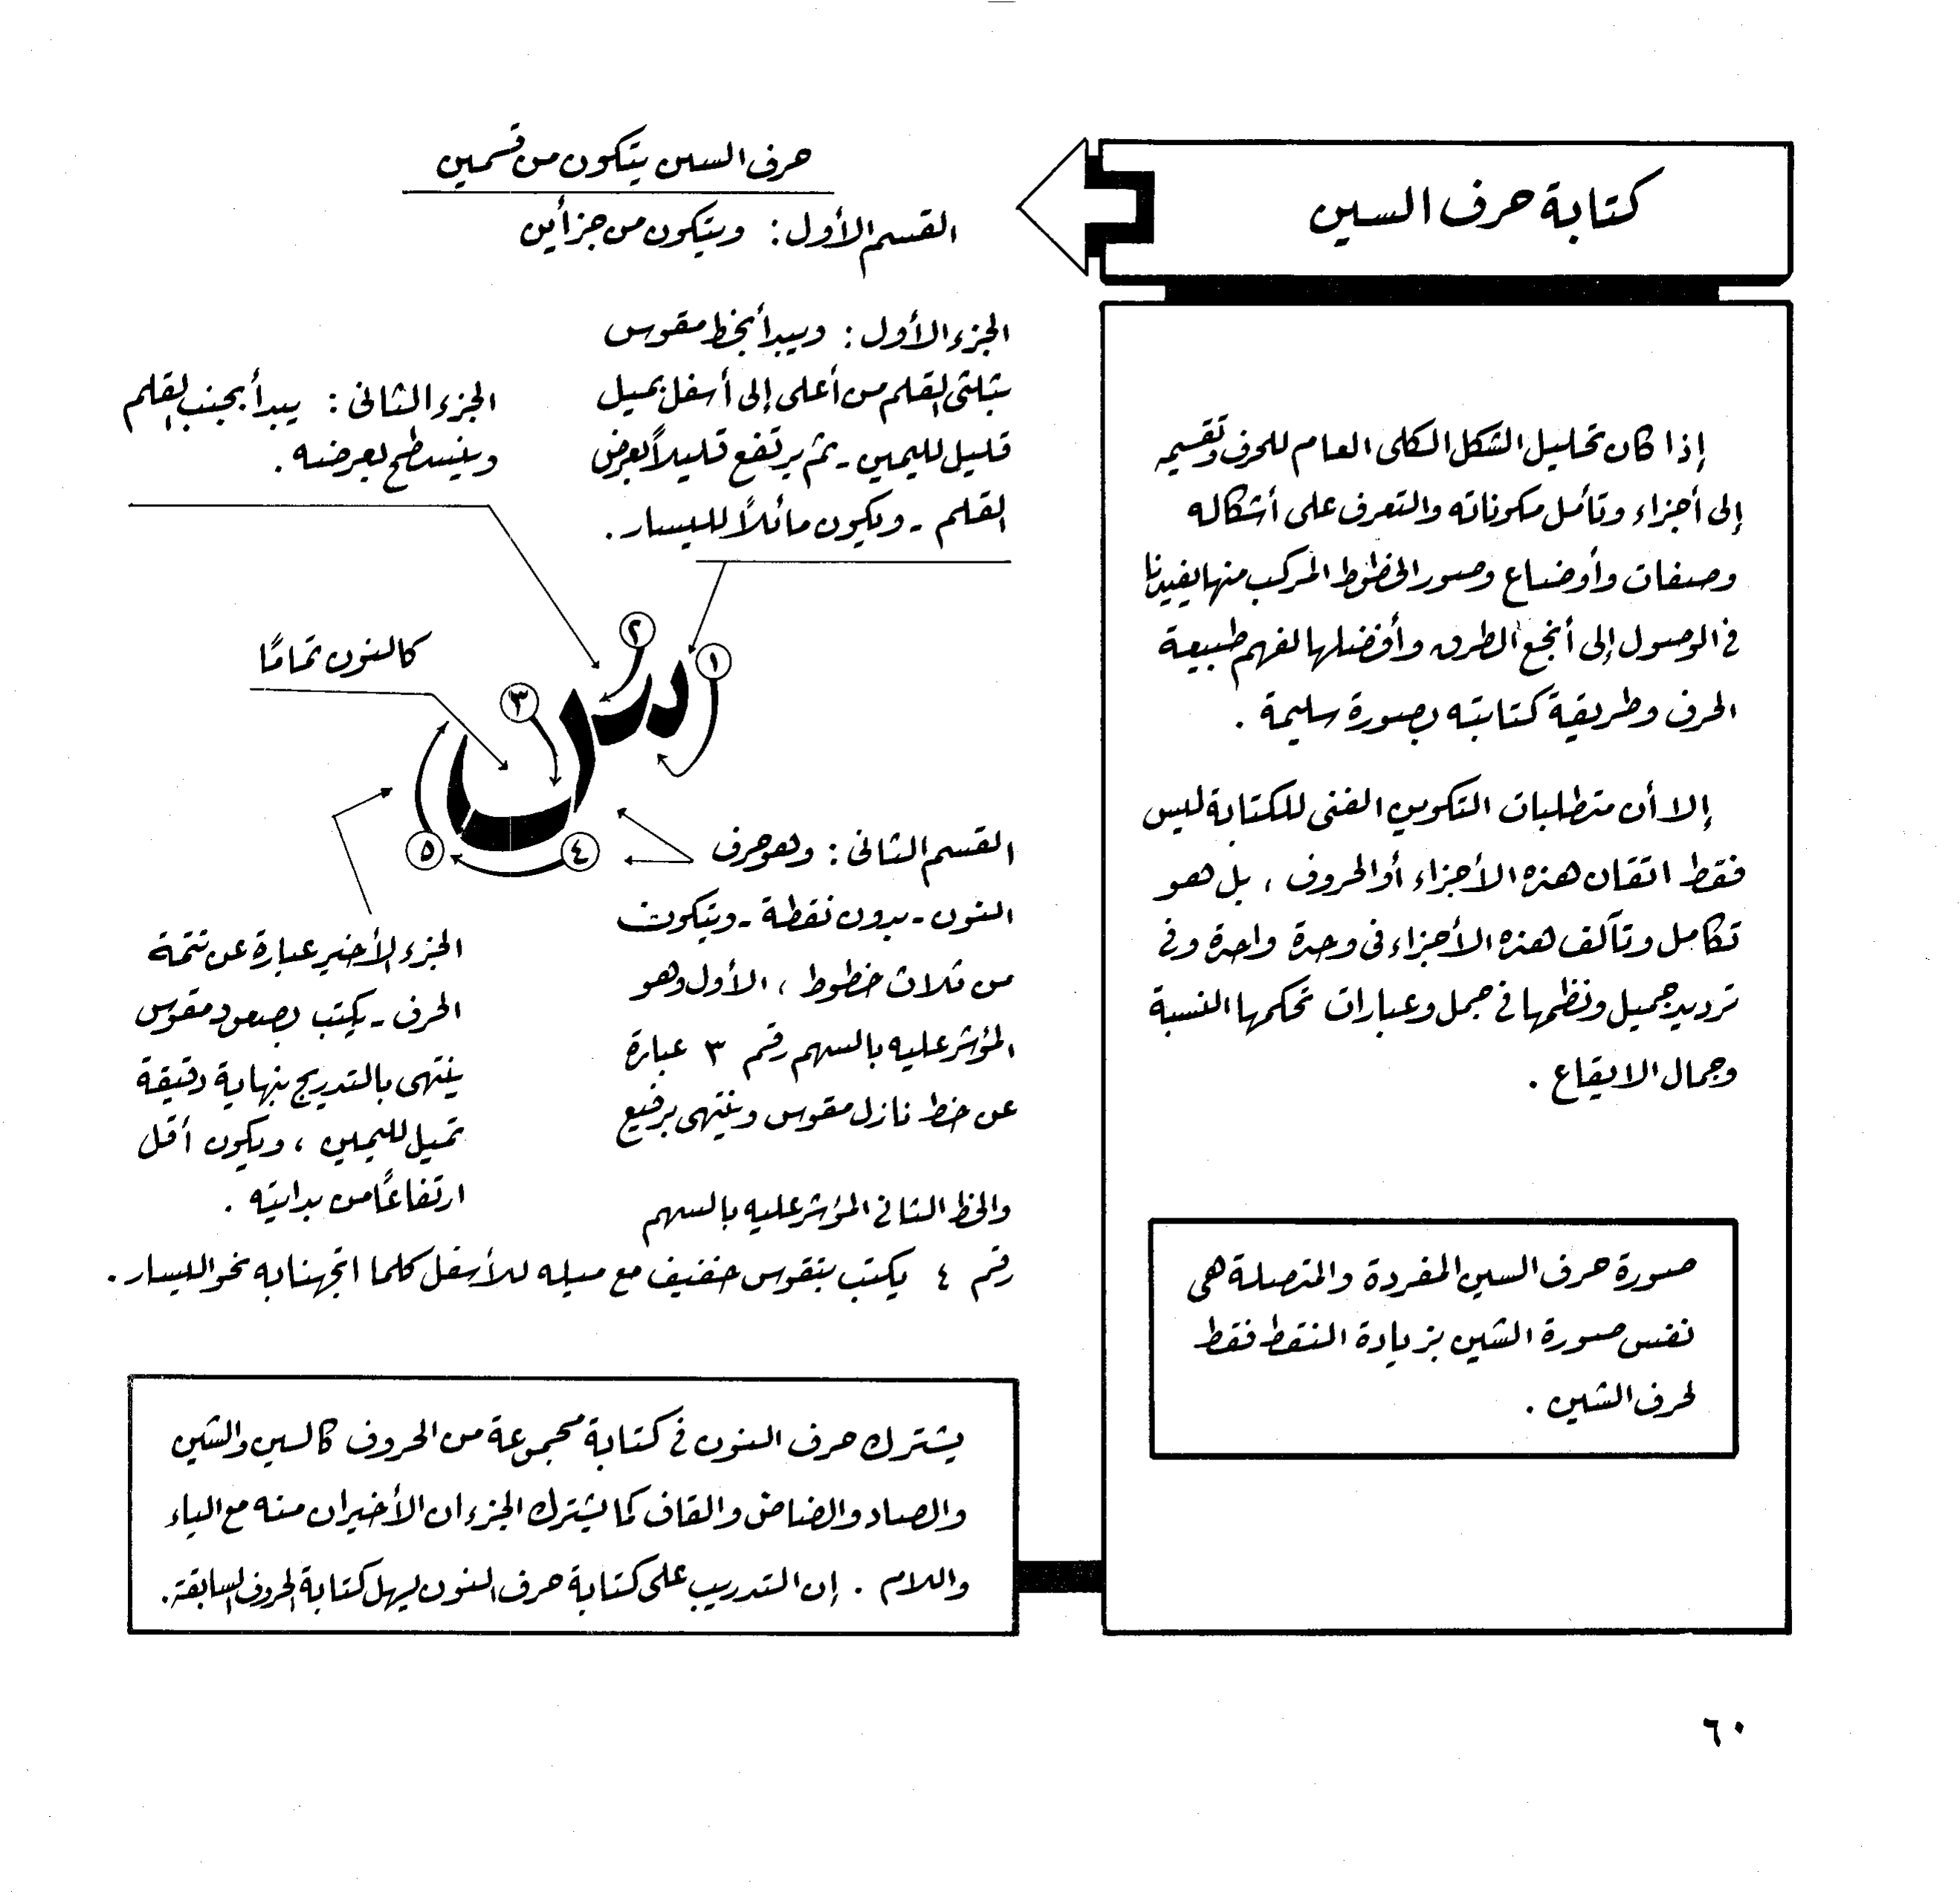 كتابة حرف السين
إذا كان تحليل الشكل الكلى العام للحرف وتقسيمه
إلى أجزاء وتأمل مكوناته والتعرف على أشكاله
وصفات وأوضاع وصور الخطوط المركب منها يفيدنا
فى الوصول إلى أنجع الطرق وأفضلها لفهم طبيعة
الحرف وطريقة كتابته بصورة سليمة .
إلا أن متطلبات التكوين الفنى للكتابة ليس
فقط اتقان هذه الأجزاء أو الحروف ، بل هو
تكامل وتآلف هذه الأجزاء فى وحدة واحدة وفى
ترديد جميل ونظمها فى جمل وعبارات تحكمها النسبة
وجمال الايقاع .
صورة حرف السين المفردة والمتصلة هى
نفس صورة الشين بزيادة النقط فقط
لحرف الشين .
حرف السين يتكون من قسمين
القسم الأول : ويتكون من جزأين
الجزء الأول : ويبدأ بخط مقوس
بثلثى القلم من أعلى إلى أسفل بميل
قليل لليمين - ثم يرتفع قليلاً بعرض
القلم - ويكون مائلاً لليسار .
الجزء الثانى : يبدأ بجنب القلم
وينسطح بعرضه .
كالنون تمامًا
١
٢
٣
٤
٥
القسم الثانى : وهو حرف
النون - بدون نقطة - ويتكون
من ثلاث خطوط ، الأول وهو
المؤشر عليه بالسهم رقم ٣ عبارة
عن خط نازل مقوس وينتهى برفيع
والخط الثانى المؤشر عليه بالسهم
رقم ٤ يكتب بتقوس خفيف مع ميله للأسفل كلما اتجهنا به نحو اليسار .
الجزء الأخير عبارة عن تتمة
الحرف - يكتب بصعود مقوس
ينتهى بالتدريج بنهاية دقيقة
تميل لليمين ، ويكون أقل
ارتفاعًا من بدايته .
يشترك حرف النون فى كتابة مجموعة من الحروف كالسين والشين
والصاد والضاض والقاف كما يشترك الجزءان الأخيران منه مع الياء
واللام . إن التدريب على كتابة حرف النون يسهل كتابة الحروف السابقة .
٦٠